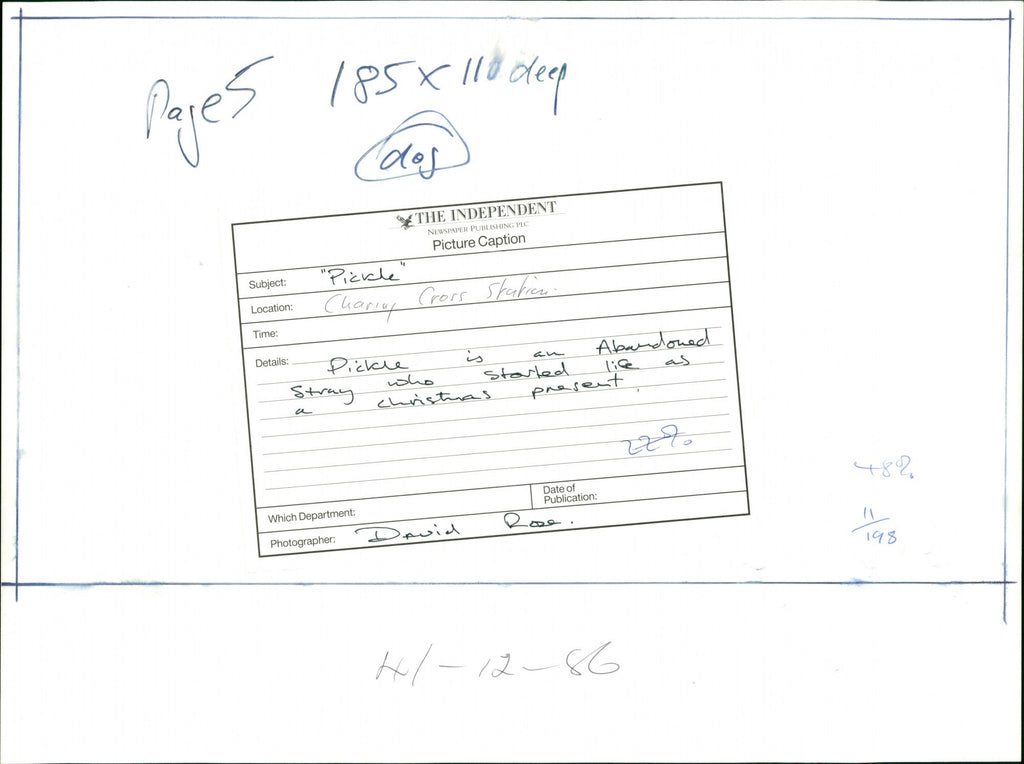 Page 5 185 x 110 deep
dog
THE INDEPENDENT
NEWSPAPER PUBLISHING PLC
Picture Caption
Subject: "Pickle"
Location: Charing Cross Station.
Time:
Details: Pickle is an Abandoned
Stray who started life as
a christmas present.
22%
48%
11/198
Which Department:
Date of
Publication:
Photographer: David Rose.
4/-12-86